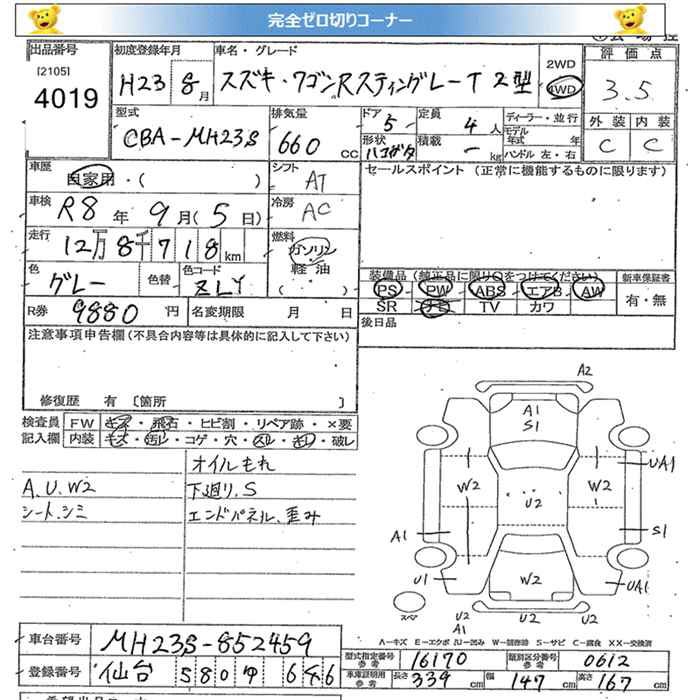 完全ゼロ切りコーナー
出品番号
[2105]
4019
初度登録年月
H23 8月
車名・グレード
スズキ・ワゴンRスティングレーT 2型
2WD
4WD
評価点
3.5
型式
CBA-MH23S
排気量
660 cc
ドア 5
形状 ハコガタ
定員 4 人
積載 - kg
ディーラー・並行
モデル年式 年式
ハンドル 左・右
外装 内装
C C
車歴
自家用・( )
シフト AT
セールスポイント (正常に機能するものに限ります)
車検
R8年 9月( 5日)
冷房 AC
走行
12万8千718km
燃料
ガソリン
軽油
( )
色 グレー 色替
色コード ZLY
装備品 (純正品に限り○をつけてください)
新車保証書
PS PW ABS エアB AW
有・無
SR ナビ TV カワ
R券 9880円
名変期限 月 日
後日品
注意事項申告欄(不具合内容等は具体的に記入して下さい)
修復歴 有 〔箇所 〕
検査員記入欄
FW キズ・飛石・ヒビ割・リペア跡・×要
内装 キズ・汚レ・コゲ・穴・スレ・キレ・破レ
オイルもれ
A.U.W2
下廻り.S
シート.シミ
エンドパネル.歪み
A2
A1
S1
UA1
W2
W2
U2
A1
S1
U1
W2
UA1
スペア
U2
A1
U2
U2
A-キズ E-エクボ U-凹み W-補修跡 S-サビ C-腐食 XX-交換済
車台番号 MH23S-852459
型式指定番号 参考 16170
類別区分番号 参考 0612
登録番号 仙台 580 ゆ 646
車庫証明用 参考
長さ 339 cm
幅 147 cm
高さ 167 cm